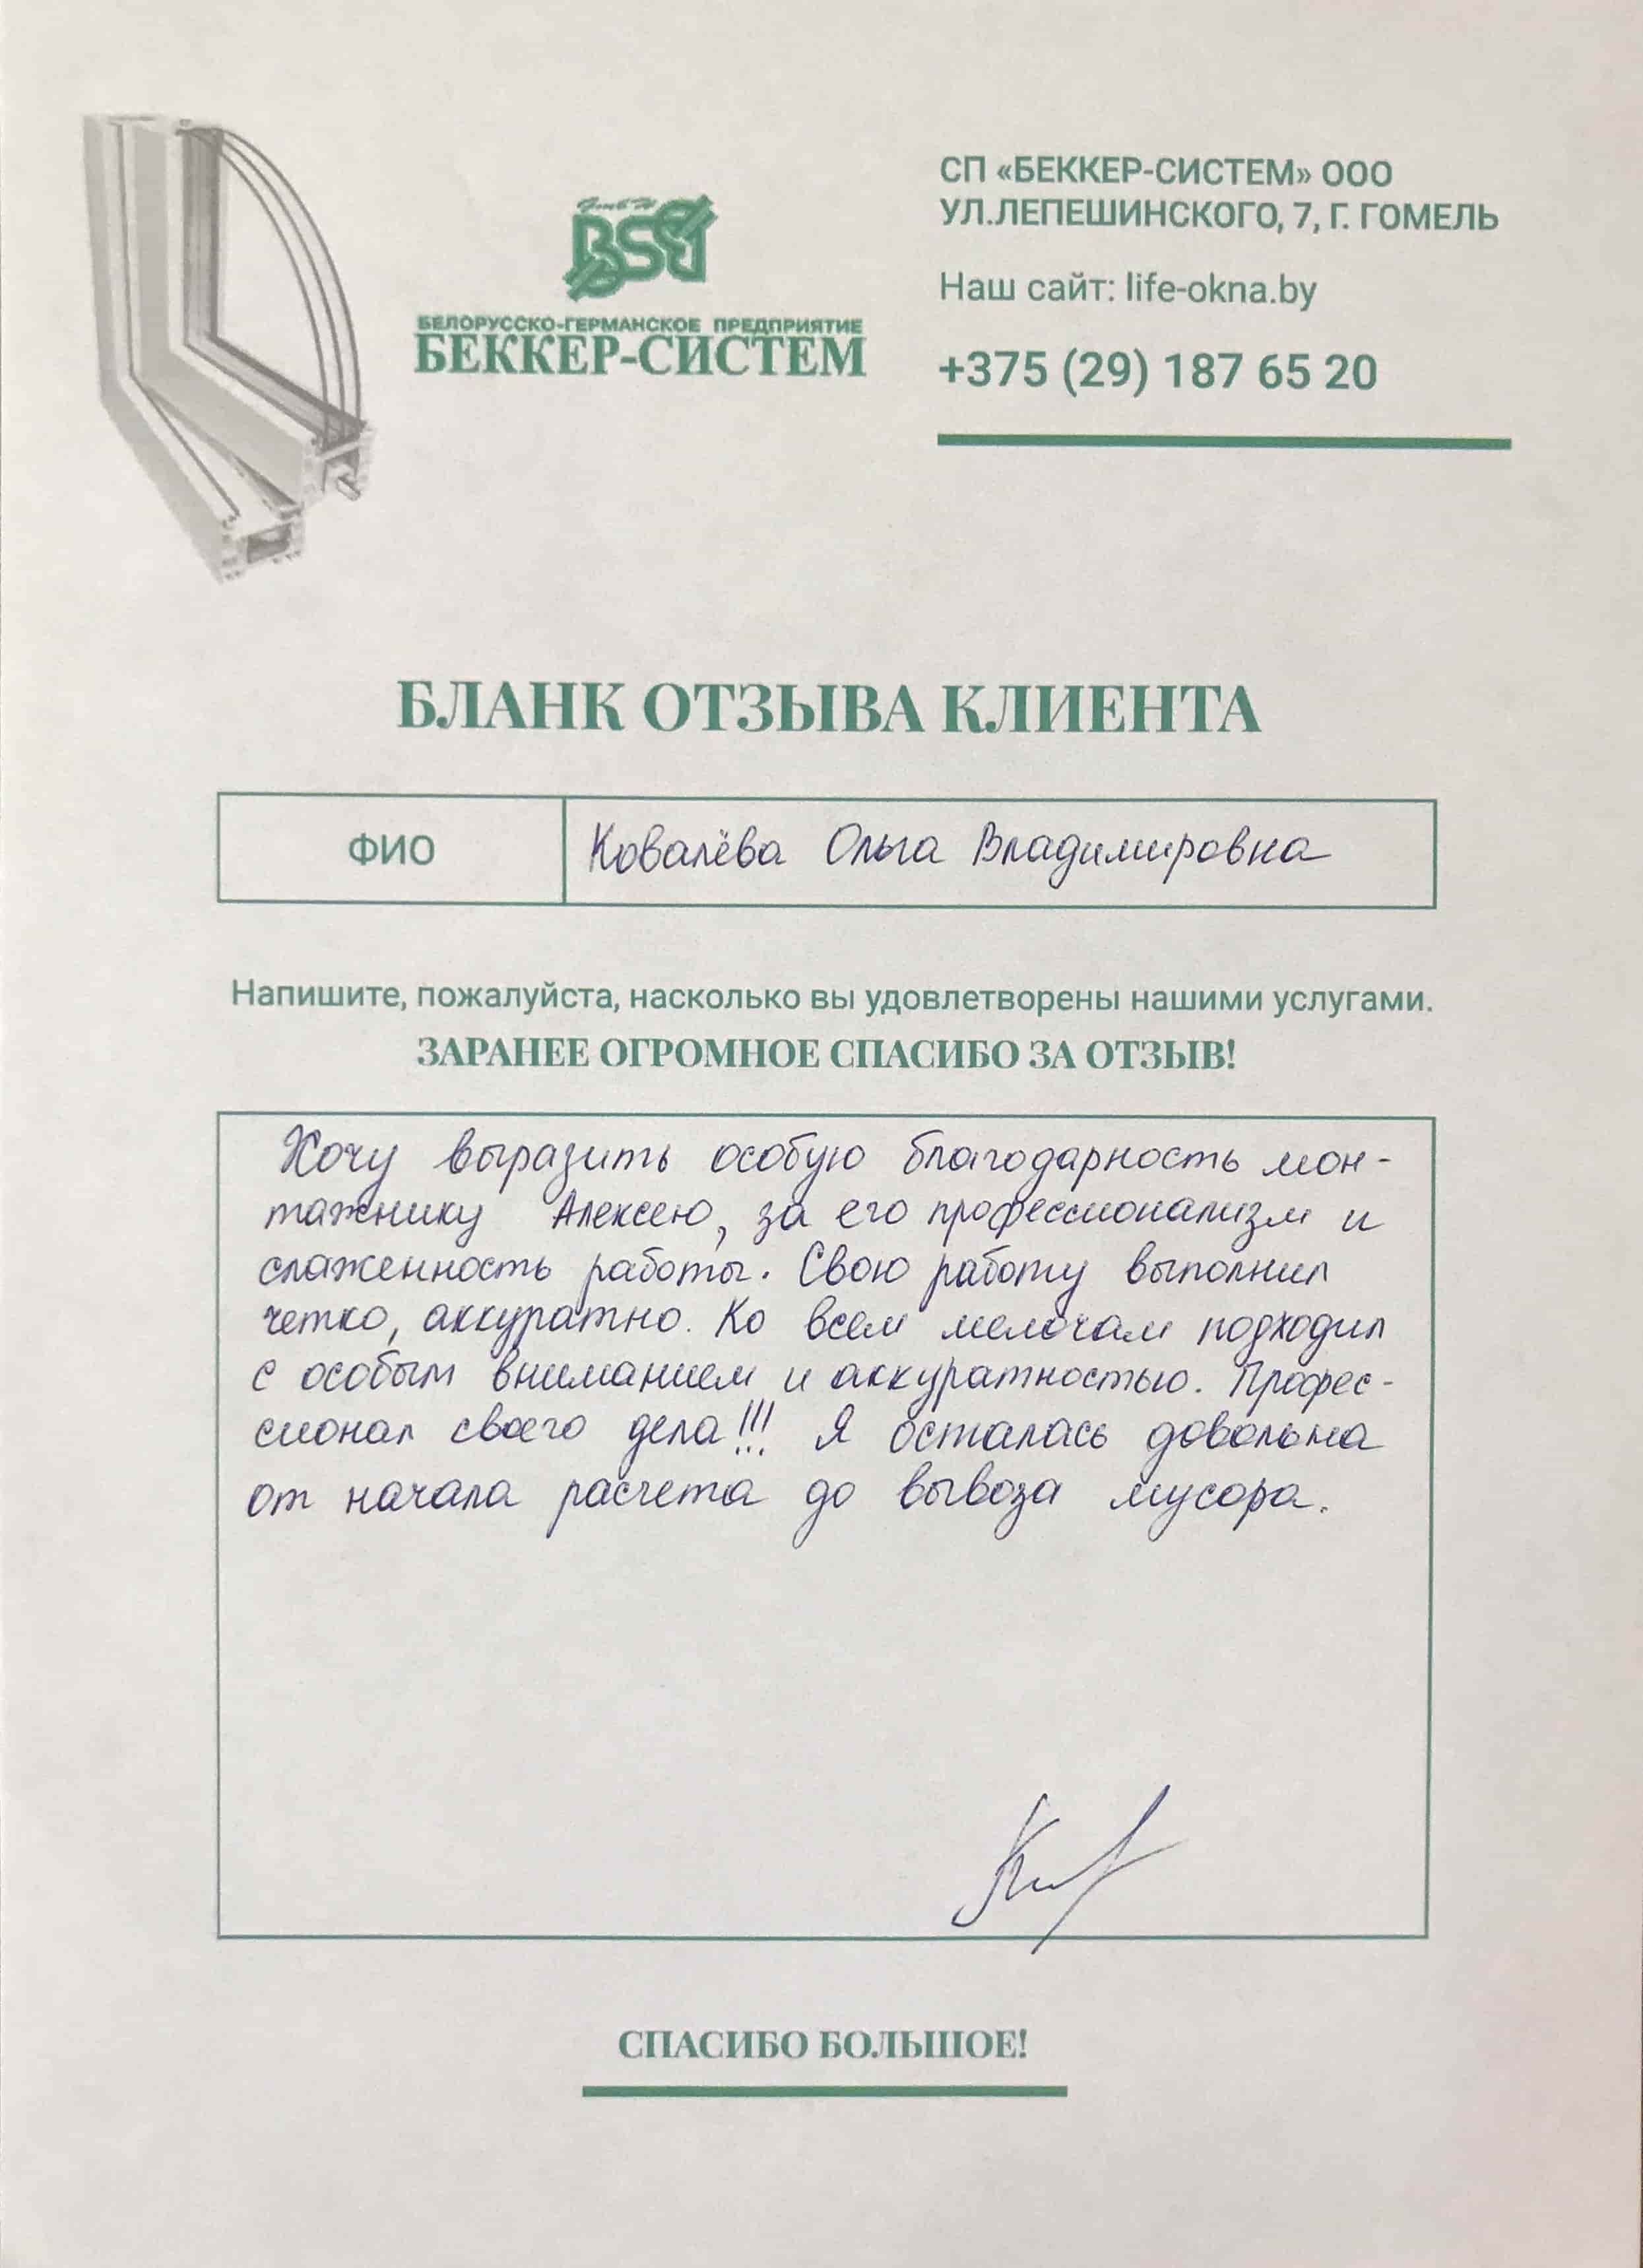 СП «БЕККЕР-СИСТЕМ» ООО
УЛ.ЛЕПЕШИНСКОГО, 7, Г. ГОМЕЛЬ
Наш сайт: life-okna.by
+375 (29) 187 65 20
GmbH
BSG
БЕЛОРУССКО-ГЕРМАНСКОЕ ПРЕДПРИЯТИЕ
БЕККЕР-СИСТЕМ
БЛАНК ОТЗЫВА КЛИЕНТА
ФИО Ковалёва Ольга Владимировна
Напишите, пожалуйста, насколько вы удовлетворены нашими услугами.
ЗАРАНЕЕ ОГРОМНОЕ СПАСИБО ЗА ОТЗЫВ!
Хочу выразить особую благодарность мон-
тажнику Алексею, за его профессионализм и
слаженность работы. Свою работу выполнил
четко, аккуратно. Ко всем мелочам подходил
с особым вниманием и аккуратностью. Профес-
сионал своего дела!!! Я осталась довольна
от начала расчета до вывоза мусора.
СПАСИБО БОЛЬШОЕ!